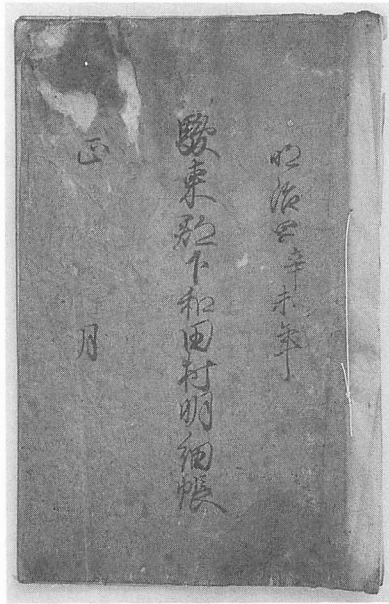 明治四辛未年
駿東郡下和田村明細帳
正月